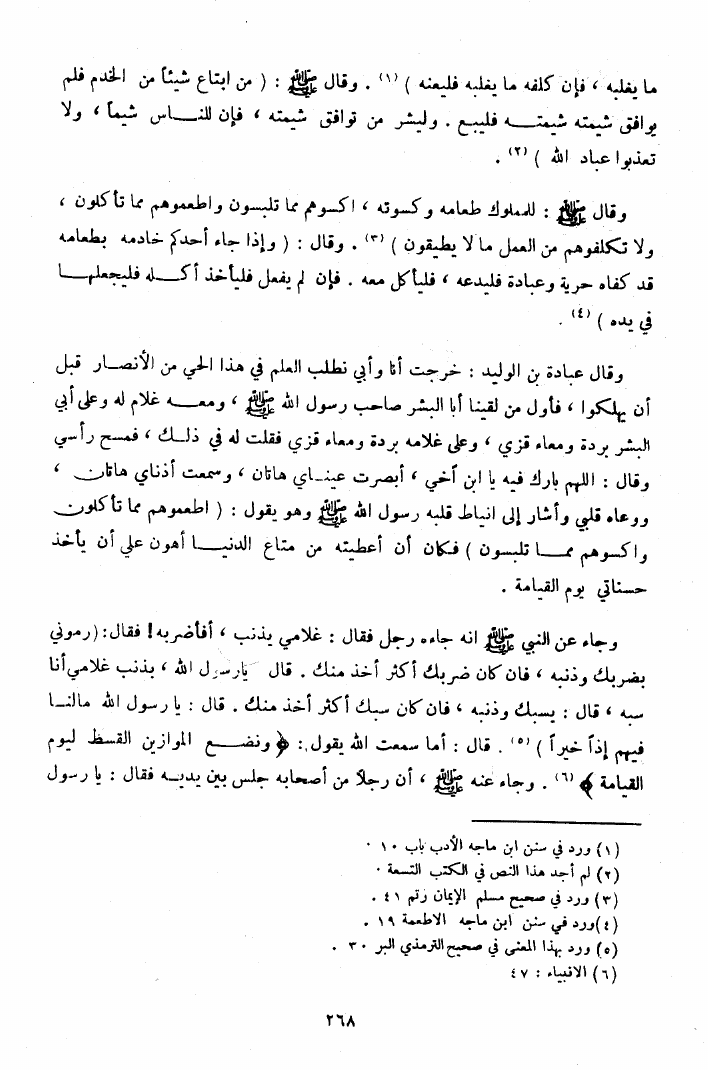 ما يغلبه ، فإن كلفه ما يغلبه فليعنه ) (١) . وقال ﷺ : ( من ابتاع شيئاً من الخدم فلم
يوافق شيمته شيمتـــه فليبع . وليشر من توافق شيمته ، فإن للنـــاس شيماً ، ولا
تعذبوا عباد الله ) (٢) .
وقال ﷺ : للمملوك طعامه وكسوته ، اكسوهم مما تلبسون واطعموهم مما تأكلون ،
ولا تكلفوهم من العمل ما لا يطيقون ) (٣) . وقال : ( وإذا جاء أحدكم خادمه بطعامه
قد كفاه حرية وعبادة فليدعه ، فليأكل معه . فإن لم يفعل فليأخذ أكـــله فليجعلهـــا
في يده ) (٤) .
وقال عبادة بن الوليد : خرجت أنا وأبي نطلب العلم في هذا الحي من الأنصـار قبل
أن يهلكوا ، فأول من لقينا أبا البشر صاحب رسول الله ﷺ ، ومعـــه غلام له وعلى أبي
البشر بردة ومعاء قزي ، وعلى غلامه بردة ومعاء قزي فقلت له في ذلـك ، فمسح رأسي
وقال : اللهم بارك فيه يا ابن أخي ، أبصرت عينـاي هاتان ، وسمعت أذناي هاتان ،
ووعاه قلبي وأشار إلى انياط قلبه رسول الله ﷺ وهو يقول : ( اطعموهم مما تأكلون
واكسوهم ممـــا تلبسون ) فكان أن أعطيته من متاع الدنيـــا أهون علي أن يأخذ
حسناتي يوم القيامة .
وجاء عن النبي ﷺ انه جاءه رجل فقال : غلامي يذنب ، أفأضربه! فقال: (رموني
بضربك وذنبه ، فان كان ضربك أكثر أخذ منك . قال يارسول الله ، يذنب غلامي أنا
سبه ، قال : يسبك وذنبه ، فان كان سبك أكثر أخذ منك . قال : يا رسول الله مالنـــا
فيهم إذاً خيراً ) (٥) . قال : أما سمعت الله يقول : ﴿ ونضـــع الموازين القسط ليوم
القيامة ﴾ (٦) . وجاء عنه ﷺ ، أن رجلاً من أصحابه جلس بين يديـه فقال : يا رسول
(١) ورد في سنن ابن ماجه الأدب باب ١٠ .
(٢) لم أجد هذا النص في الكتب التسعة .
(٣) ورد في صحيح مسلم الإيمان رقم ٤١ .
(٤)ورد في سنن ابن ماجه الاطعمة ١٩ .
(٥) ورد بهذا المعنى في صحيح الترمذي البر ٣٠ .
(٦) الانبياء : ٤٧
٢٦٨